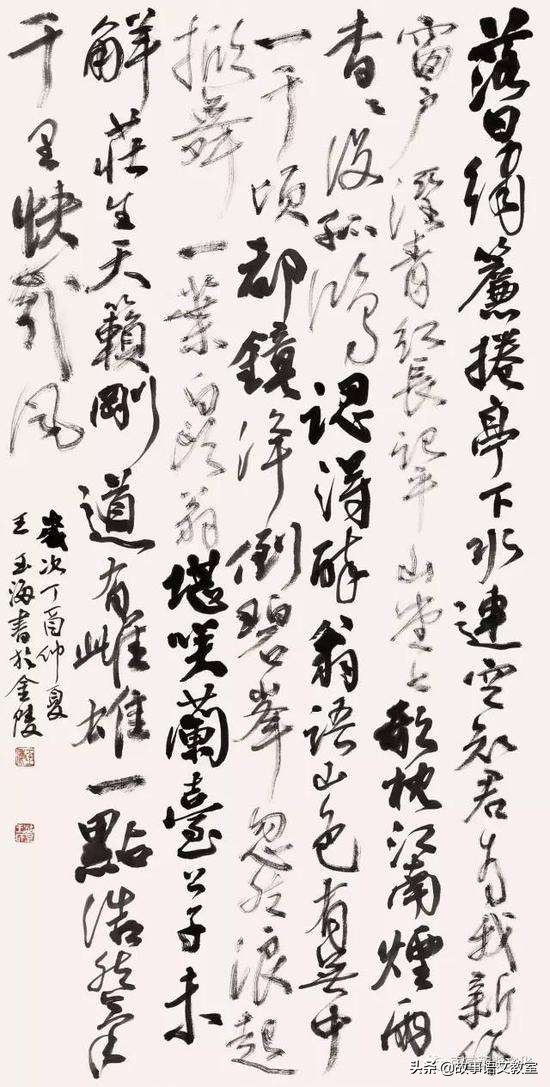 落日繡簾捲亭下水連空知君為我新作
窗戶溼青紅長記平山堂上欹枕江南煙雨
杳々没孤鴻認得醉翁語山色有無中
一千頃都鏡淨倒碧峯忽然浪起
掀舞一葉白頭翁堪咲蘭臺公子未
解莊生天籟剛道有雌雄一點浩然氣
千里快哉風
歲次丁酉仲夏
王玉海書於金陵
头条 @故事语文教室